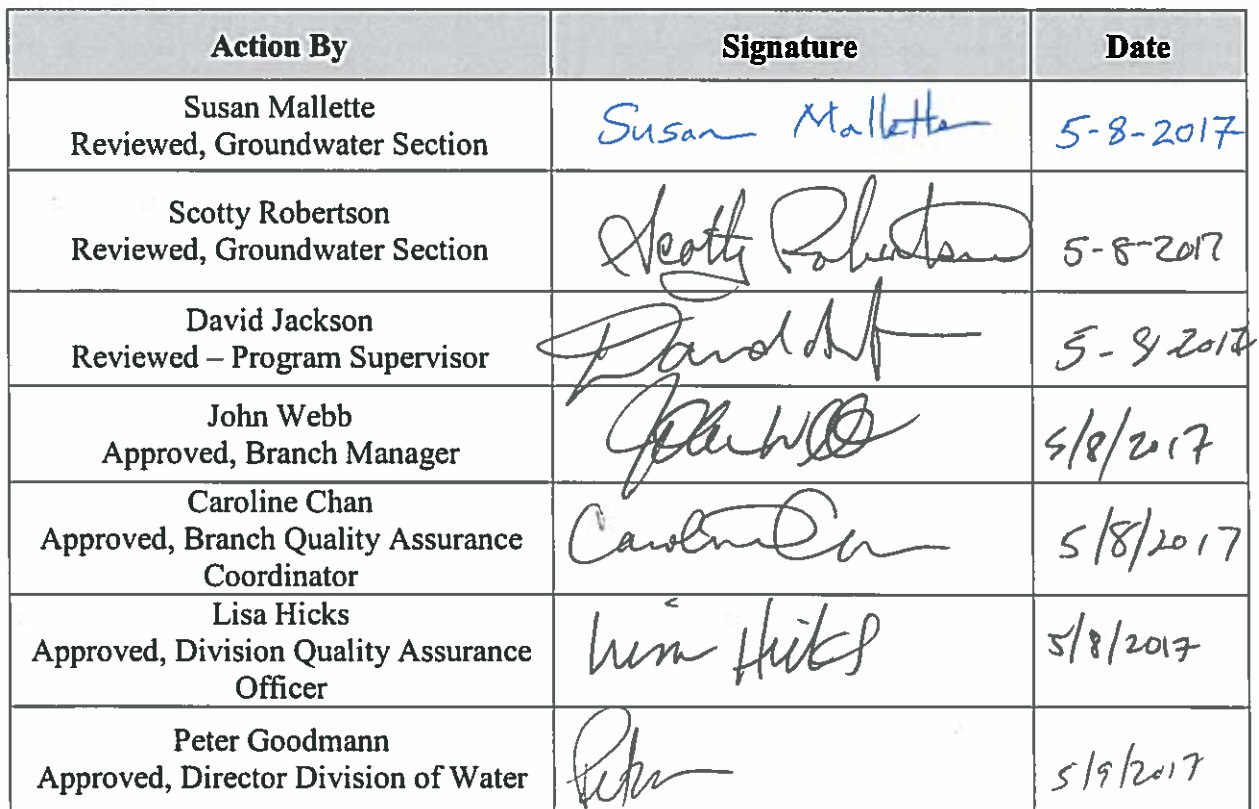 Action By Signature Date
Susan Mallette
Reviewed, Groundwater Section
Susan Mallette 5-8-2017
Scotty Robertson
Reviewed, Groundwater Section
Scotty Robertson 5-8-2017
David Jackson
Reviewed – Program Supervisor
David 5-8-2017
John Webb
Approved, Branch Manager
John Webb 5/8/2017
Caroline Chan
Approved, Branch Quality Assurance
Coordinator
Caroline Chan 5/8/2017
Lisa Hicks
Approved, Division Quality Assurance
Officer
Lisa Hicks 5/8/2017
Peter Goodmann
Approved, Director Division of Water
Peter 5/9/2017